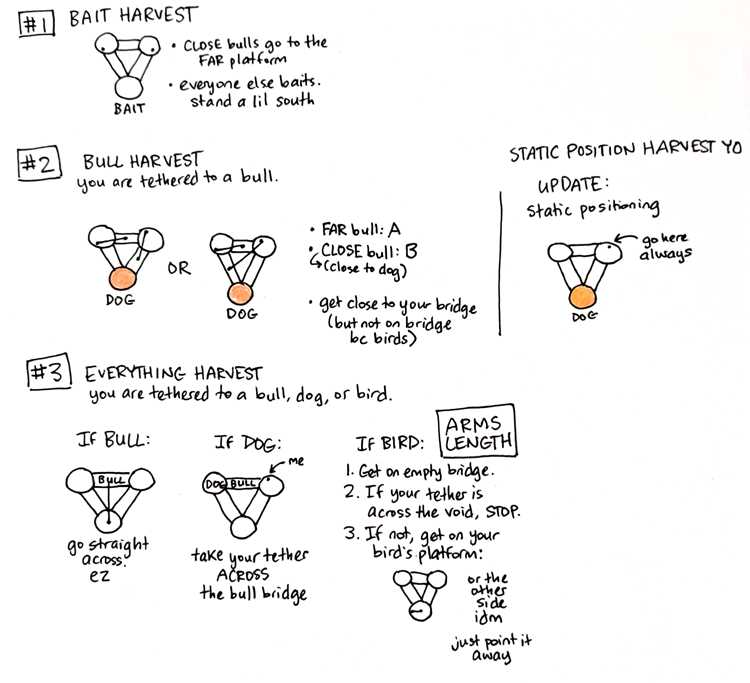 #1 BAIT HARVEST
• CLOSE bulls go to the
FAR platform
• everyone else baits.
stand a lil south
BAIT
#2 BULL HARVEST
you are tethered to a bull.
DOG
OR
DOG
• FAR bull: A
• CLOSE bull: B
(close to dog)
• get close to your bridge
(but not on bridge
bc birds)
STATIC POSITION HARVEST YO
UPDATE:
static positioning
go here
always
DOG
#3 EVERYTHING HARVEST
you are tethered to a bull, dog, or bird.
IF BULL:
BULL
go straight
across.
ez
IF DOG:
me
DOG BULL
take your tether
ACROSS
the bull bridge
IF BIRD:
ARMS
LENGTH
1. Get on empty bridge.
2. If your tether is
across the void, STOP.
3. If not, get on your
bird's platform:
or the
other
side
idm
just point it
away